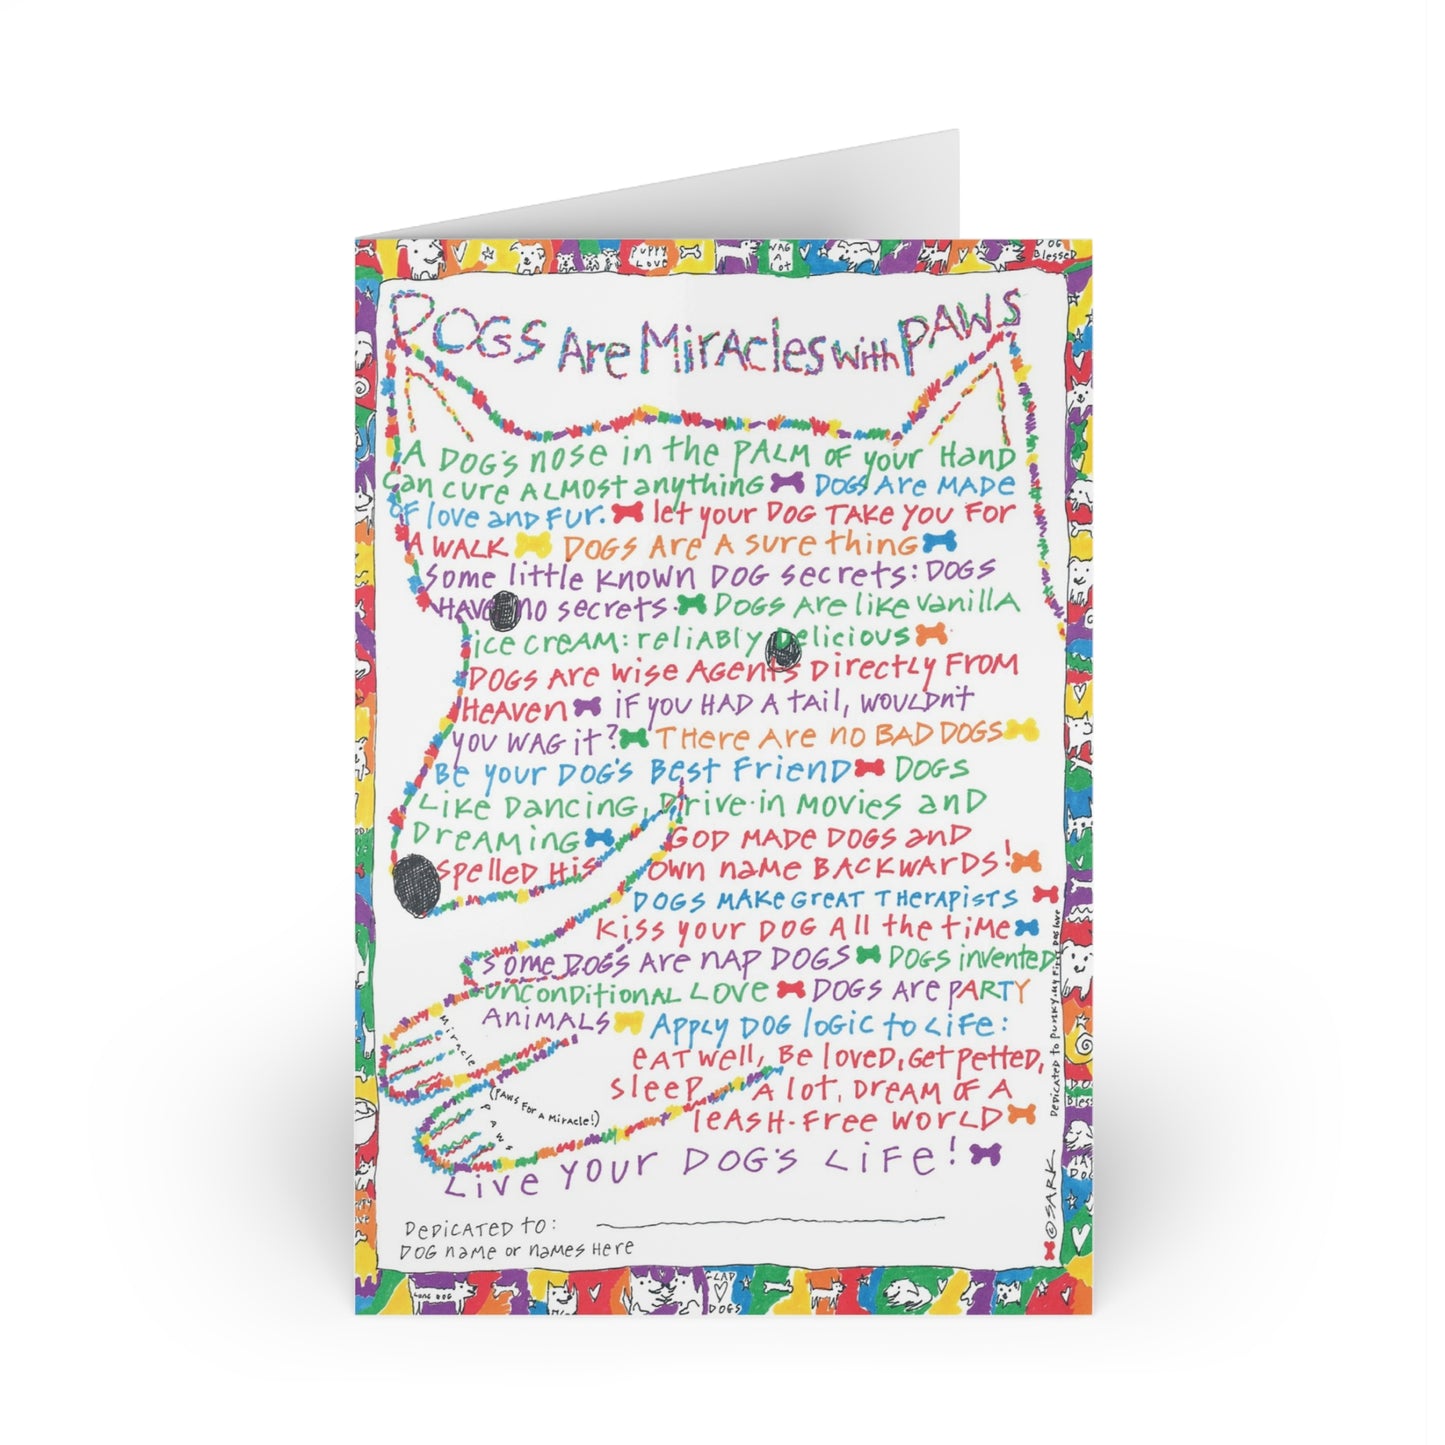 PUPPY LOVE
WAG A LOT
DOG Blessed
DOGS Are Miracles with PAWS
A DOG'S nose in the PALM OF your Hand
Can cure ALMOST anything DOGS Are MADE
OF love and Fur. let your DOG TAKE YOU FOR
A WALK DOGS Are A sure thing
Some little known DOG secrets: DOGS
HAVE no secrets. DOGS Are like vanilla
ice cream: reliably Delicious
DOGS Are wise Agents Directly From
Heaven if you HAD A tail, wouldn't
you WAG it? There Are no BAD DOGS
Be your DOG'S Best Friend DOGS
Like Dancing, Drive-in movies and
Dreaming GOD MADE DOGS and
Spelled His own name BACKWARDS!
DOGS MAKE Great Therapists
Kiss your DOG All the time
Some DOGS Are nap DOGS DOGS invented
unconditional Love DOGS Are PARTY
Animals Apply DOG logic to Life:
eat well, Be loved, Get petted,
sleep A lot, Dream of A
leash-free world
Live your DOG'S LiFe!
Miracle
PAWS
(PAWS For A Miracle!)
Dedicated to Punky, my First Dog love
© SARK
Dedicated to:
DOG name or names Here
LONG DOG
GLAD DOGS